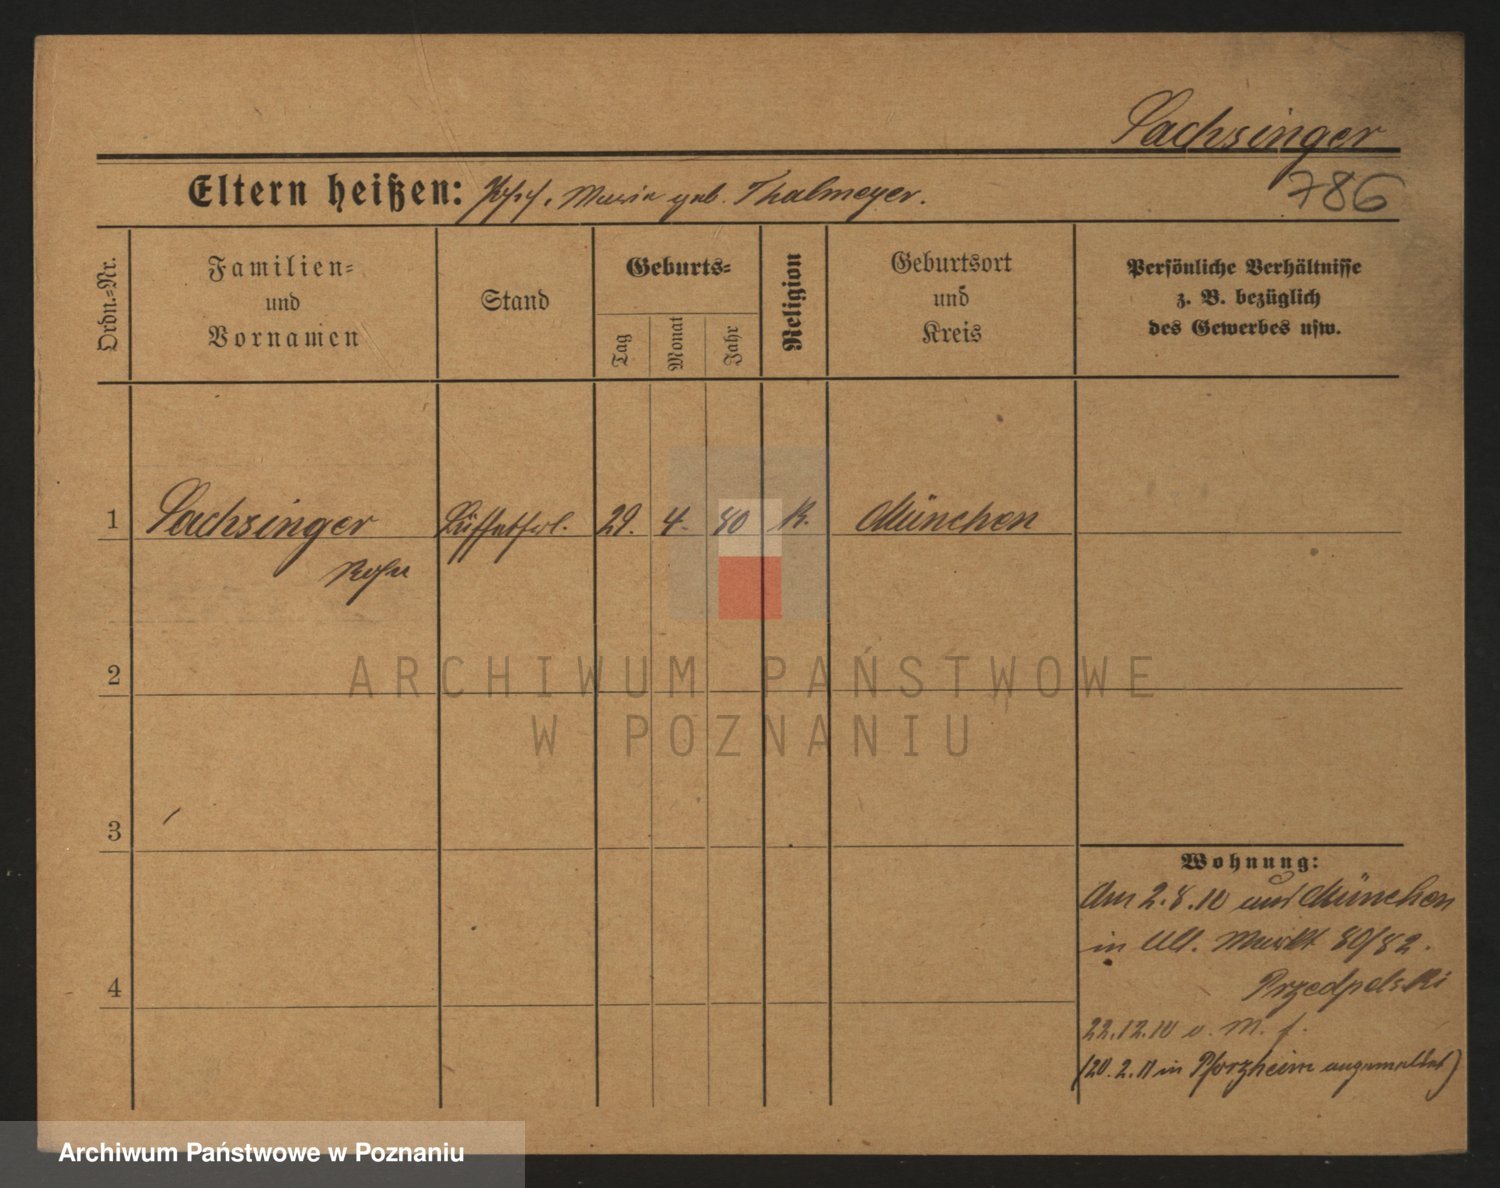 Sachsinger
786
Eltern heißen: Josef, Maria geb. Thalmeyer.
Ordn.-Nr.
Familien- und Vornamen
Stand
Geburts-
Tag
Monat
Jahr
Religion
Geburtsort und Kreis
Persönliche Verhältnisse
z. B. bezüglich
des Gewerbes usw.
1 Sachsinger Büffetfrl. 29. 4. 80 K. München
Rosa
2
3
4
Wohnung:
Am 2.8.10 aus München
in Alt. Markt 80/82.
Przedpelski
22.12.10 v. M.
(20.2.11 in Pforzheim angemeldet)
ARCHIWUM PAŃSTWOWE
W POZNANIU
Archiwum Państwowe w Poznaniu